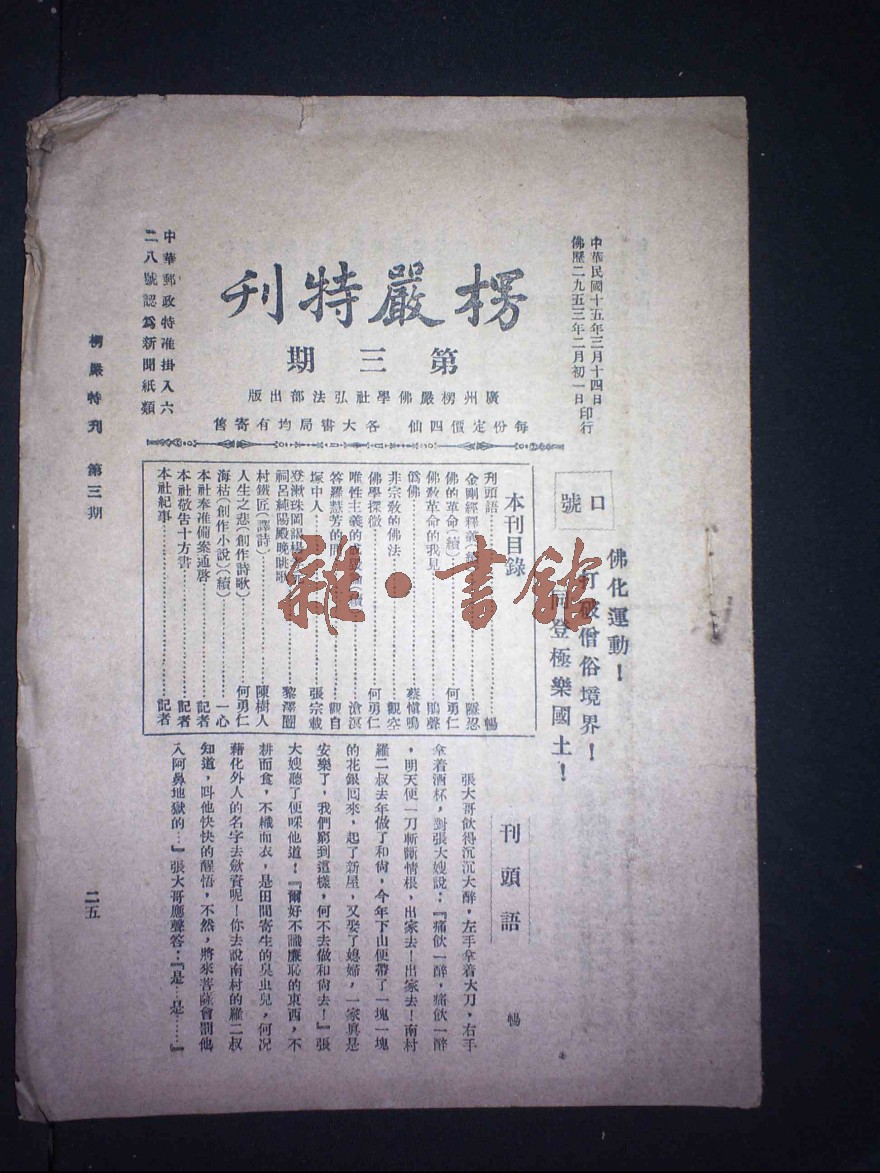 中華民國十五年三月十四日
佛歷二九五三年二月初一日印行
楞嚴特刊
第三期
廣州楞嚴佛學社弘法部出版
每份定價四仙 各大書局均有寄售
中華郵政特准掛入六
二八號認爲新聞紙類
楞嚴特刊 第三期
二五
口號
佛化運動！
打破僧俗境界！
同登極樂國土！
本刊目錄
刊頭語……暢
金剛經釋義……隱忍
佛的革命（續）……何勇仁
佛教革命的我見……鵑聲
僞佛……蔡愼鳴
非宗教的佛法……觀空
佛學探微……何勇仁
唯性主義的……滄溟
答羅慧芳的……觀自
塚中人……張宗載
登漱珠岡
祠呂純陽殿晚眺歌……黎澤闓
村鐵匠（譯詩）……陳樹人
人生之悲（創作詩歌）……何勇仁
海枯（創作小說）（續）……一心
本社奉准備案通啓……記者
本社敬告十方書……記者
本社紀事……記者
雜·書館
刊頭語
暢
張大哥飲得沉沉大醉，左手拿着大刀，右手
拿着酒杯，對張大嫂說：『痛飲一醉，痛飲一醉
，明天便一刀斬斷情根，出家去！出家去！南村
羅二叔去年做了和尙，今年下山便帶了一塊一塊
的花銀回來，起了新屋，又娶了媳婦，一家眞是
安樂了，我們窮到這樣，何不去做和尙去！』張
大嫂聽了便啋他道！『爾好不識廉恥的東西，不
耕而食，不織而衣，是田間寄生的臭虫兒，何况
藉化外人的名字去歛資呢！你去說南村的羅二叔
知道，叫他快快的醒悟，不然，將來菩薩會罰他
入阿鼻地獄的…』張大哥應聲答：『是…是……』